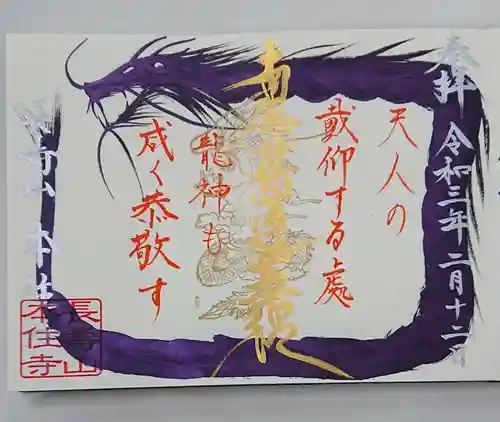 奉拝
令和三年二月十二日
天人の
戴仰する處
南無妙法蓮華経
龍神も
咸く恭敬す
長寿山 本住寺
長壽山
本住寺